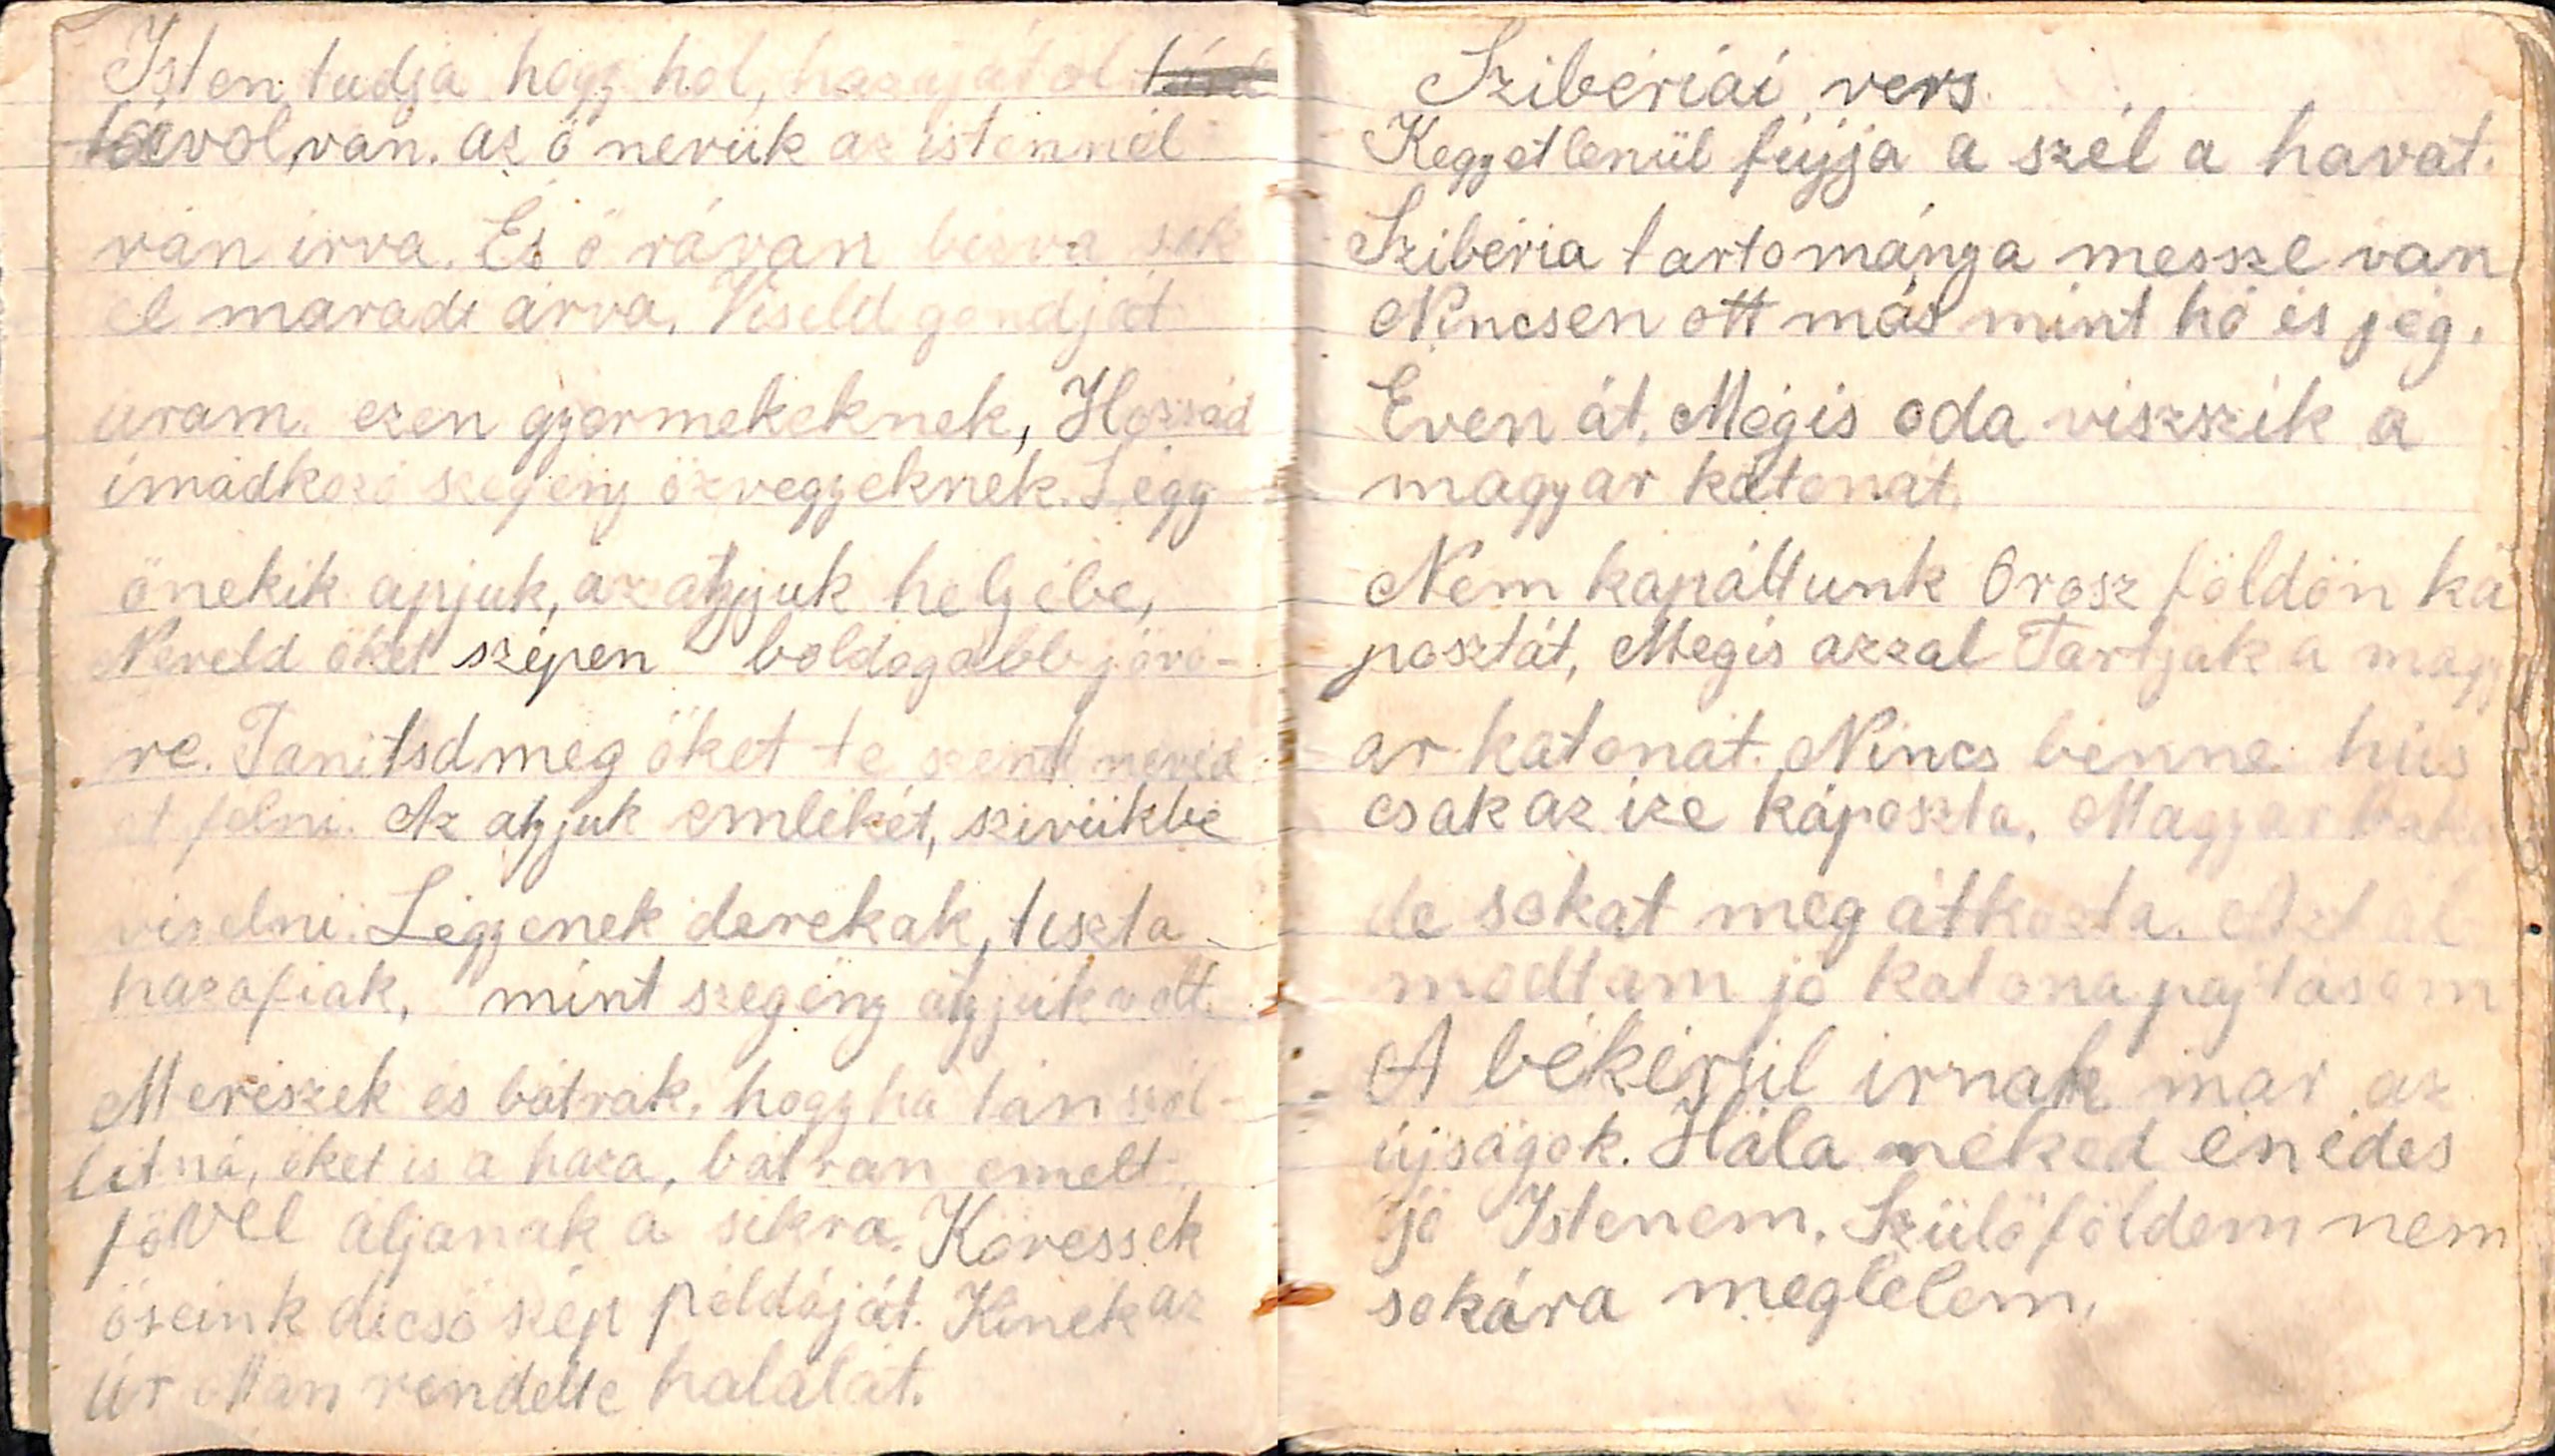 Isten tudja hogy hol, hazájától
távol van. az ő nevük az istennél
van irva. És ő rá van bizva sok
el maradt árva. Viseld gondját
uram. ezen gyermekeknek, Hozzád
imádkozó szegény özvegyeknek. Légy
önekik apjuk, az atyjuk helyébe,
Neveld őket szépen boldogabb jövő-
re. Tanitsd meg őket te szent neved
et félni. Az atyjuk emlékét, szivükbe
viselni. Légyenek derekak, tiszta
hazafiak, mint szegény atyjuk volt.
Merészek és bátrak, hogy ha tán szól-
litná, őket is a haza, bátran emelt
fövel áljanak a sikra. Kövessék
őseink dicső szép példáját. Kinek az
úr ottan rendelte halálát.
Szibériai vers
Kegyetlenül fújja a szél a havat.
Szibéria tartománya messze van
Nincsen ott más mint hó és jég.
Even át. Mégis oda viszszik a
magyar katonát.
Nem kapáltunk Orosz földön ká
posztát, Mégis azzal Tartják a magy
ar katonát. Nincs benne hús
csak az ize káposzta. Magyar baka
de sokat meg átkozta. Azt ál
modtam jó katona pajtásom
A békérül irnak már az
újságok. Hála néked én édes
jó Istenem. Szülőföldem nem
sokára meglelem.